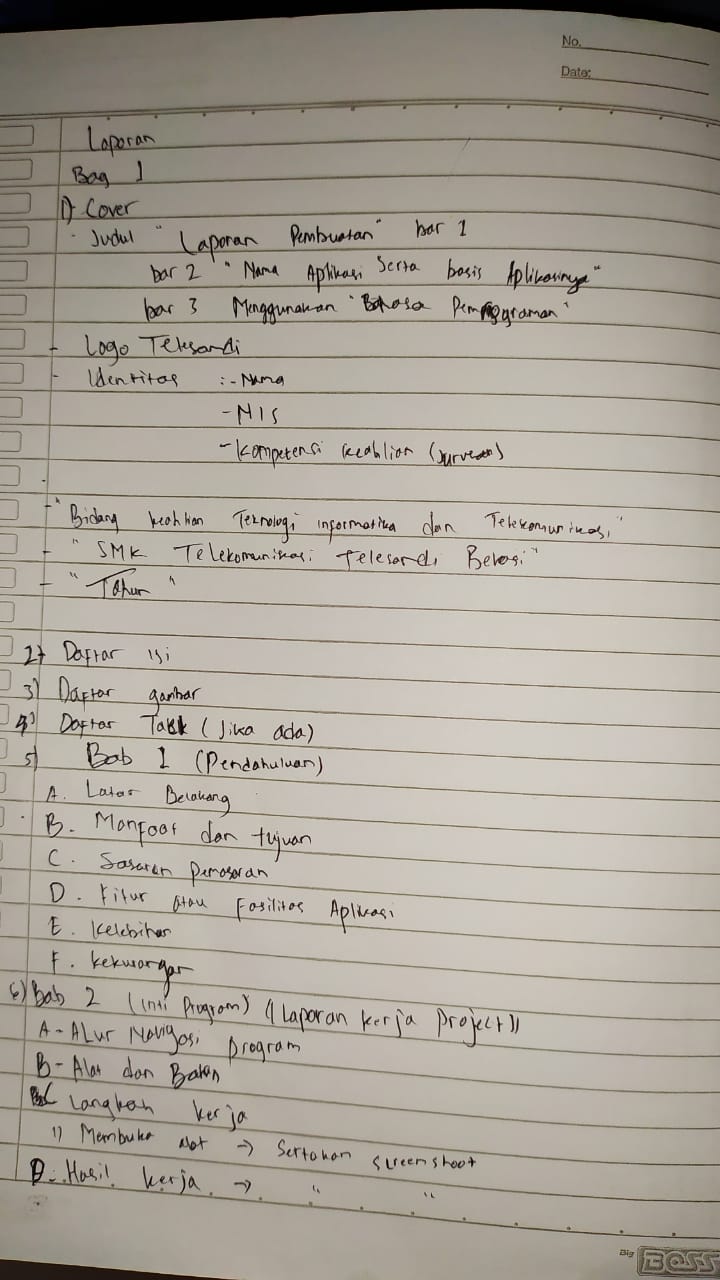 No.
Date:
Laporan
Bag 1
1) Cover
- Judul " Laporan Pembuatan " bar 1
bar 2 " Nama Aplikasi Serta basis Aplikasinya "
bar 3 Menggunakan " Bahasa Pemrograman "
- Logo Telesandi
- Identitas : - Nama
- NIS
- Kompetensi keahlian (Jurusan)
- " Bidang keahlian Teknologi informatika dan Telekomunikasi "
- " SMK Telekomunikasi Telesandi Bekasi "
- " Tahun "
2) Daftar isi
3) Daftar gambar
4) Daftar Tabel (Jika ada)
5) Bab 1 (Pendahuluan)
A. Latar Belakang
B. Manfaat dan tujuan
C. Sasaran Pemasaran
D. Fitur atau Fasilitas Aplikasi
E. Kelebihan
F. kekurangan
6) Bab 2 (inti Program) (( Laporan kerja project ))
A - Alur Navigasi program
B - Alat dan Bahan
C Langkah kerja
1) Membuka alat → Sertakan screenshoot
D - Hasil kerja → " "
Big BOSS